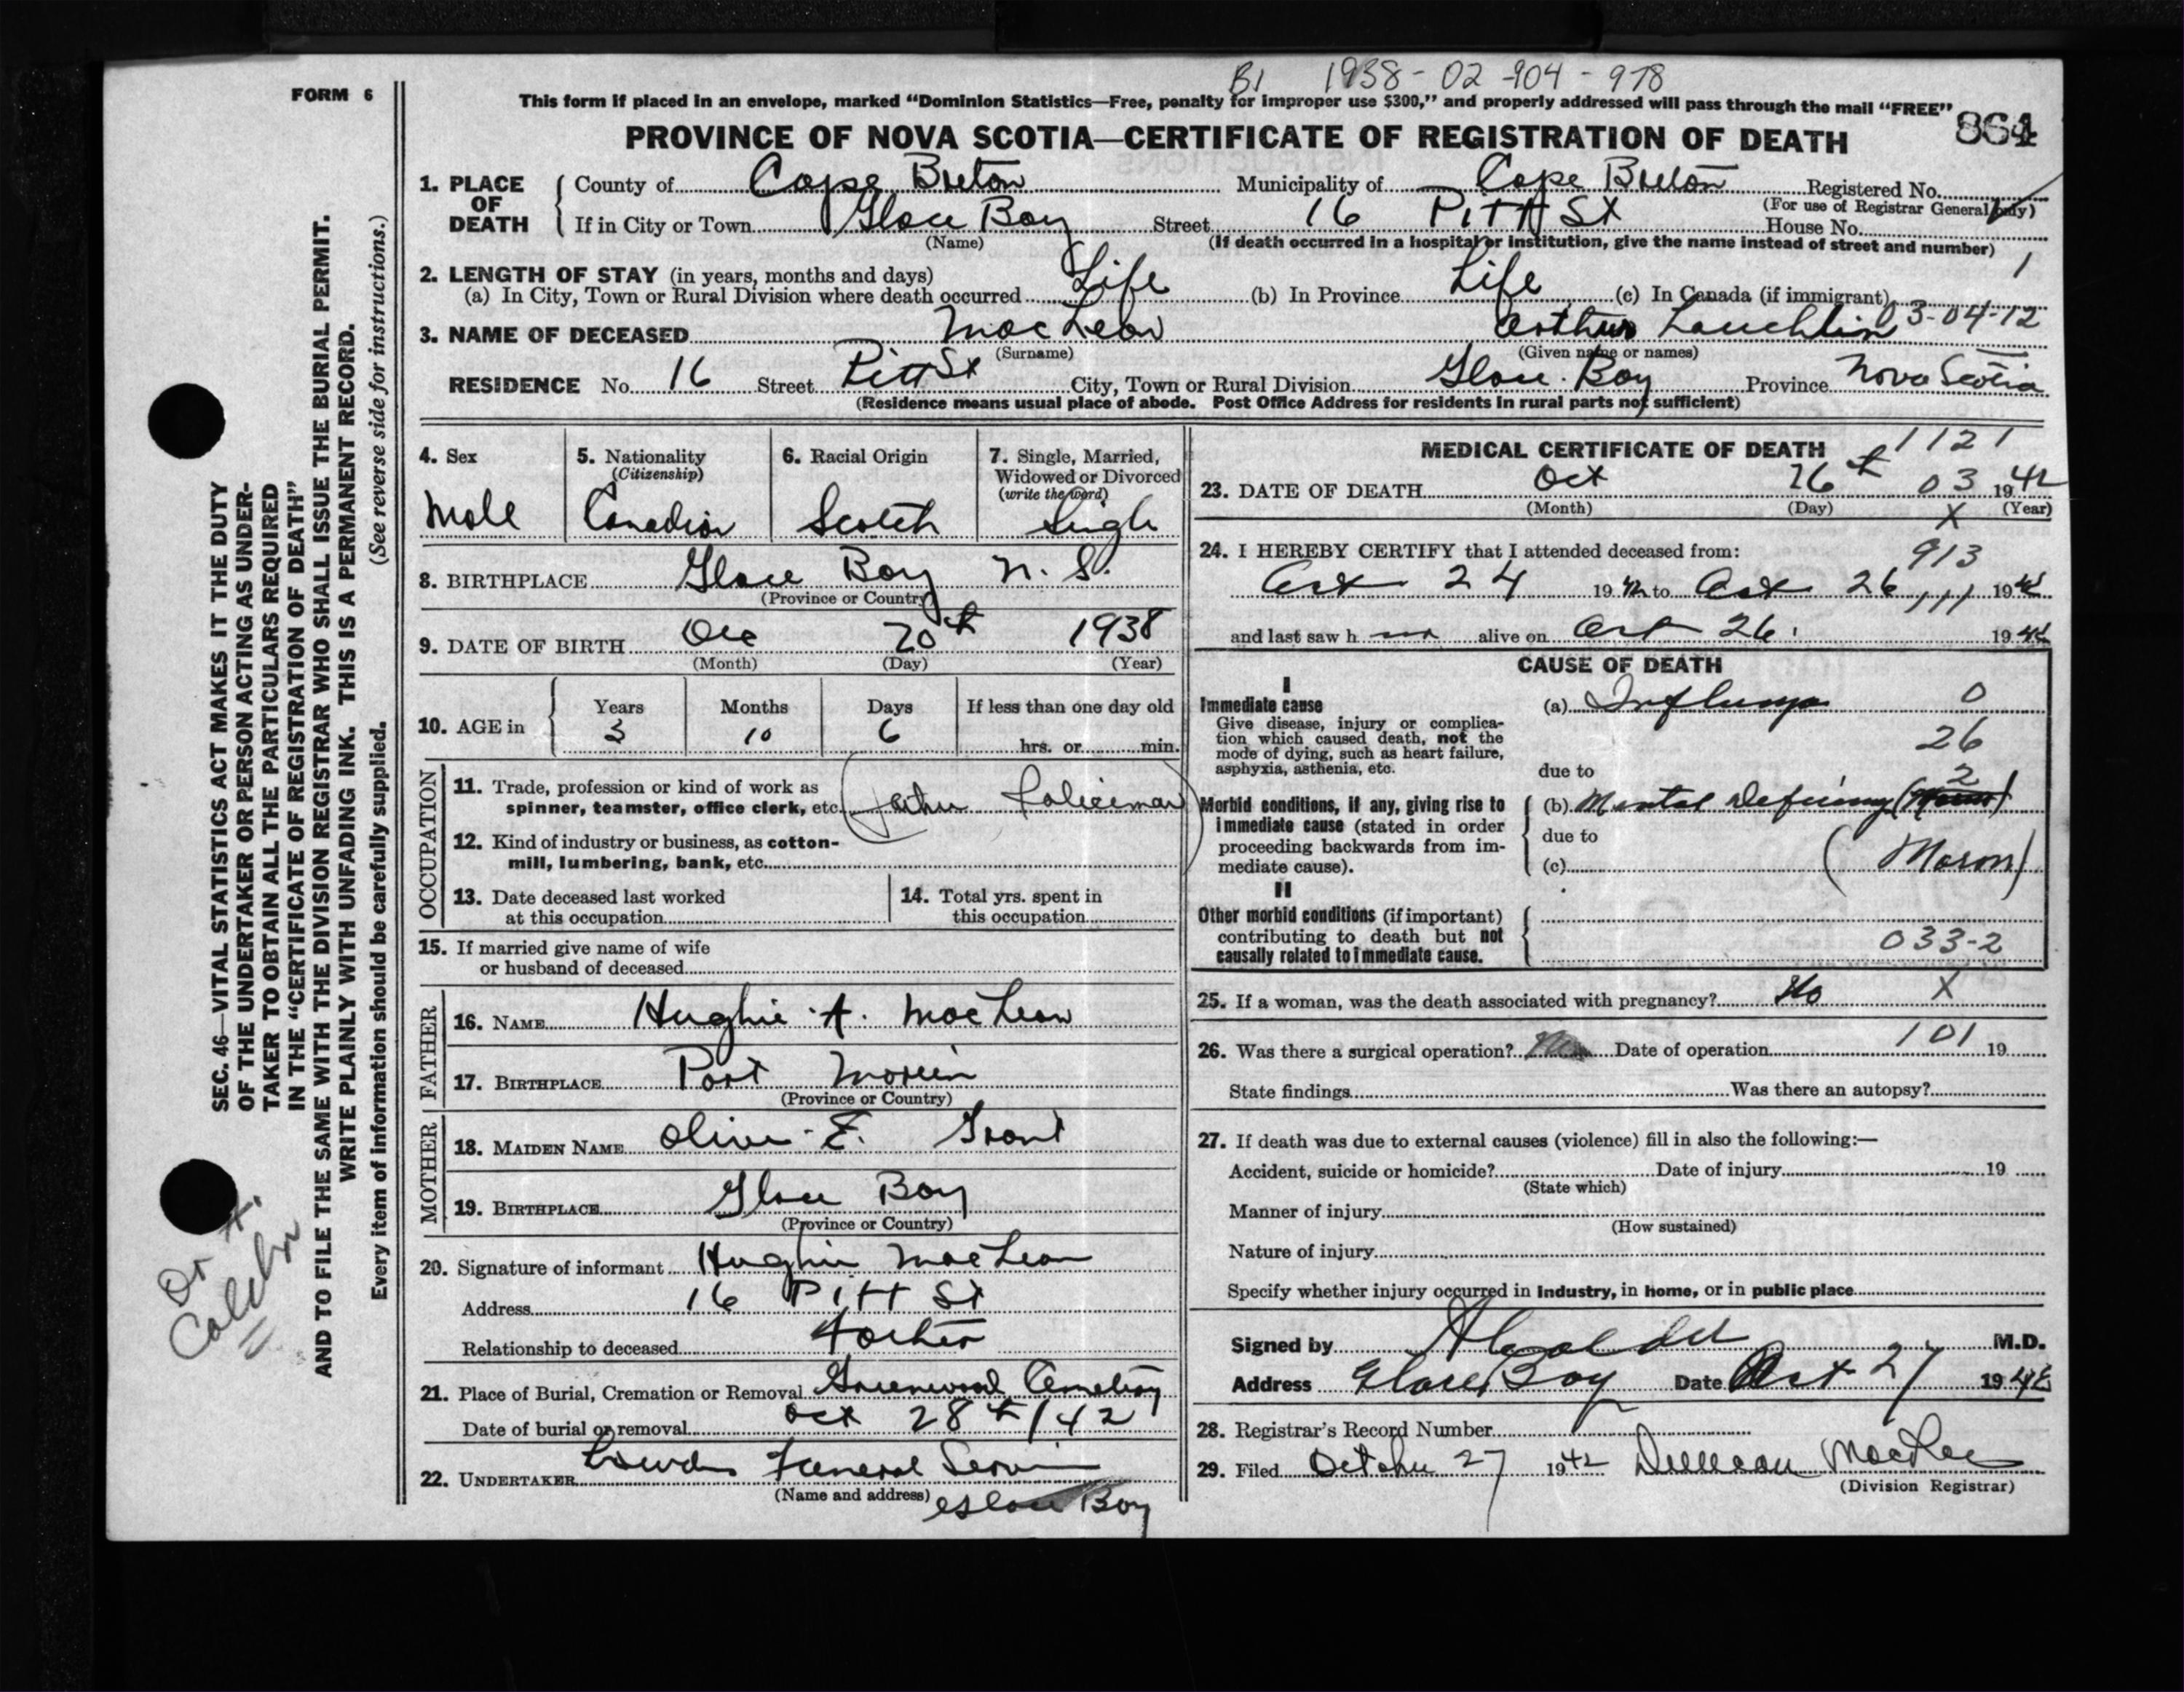 B1 1938-02-904-978
FORM 6
This form if placed in an envelope, marked “Dominion Statistics—Free, penalty for improper use $300,” and properly addressed will pass through the mail “FREE”
PROVINCE OF NOVA SCOTIA—CERTIFICATE OF REGISTRATION OF DEATH
864
1. PLACE OF DEATH
County of Cape Breton Municipality of Cape Breton Registered No.
(For use of Registrar General only)
If in City or Town Glace Bay Street 16 Pitt St House No.
(Name) (If death occurred in a hospital or institution, give the name instead of street and number)
2. LENGTH OF STAY (in years, months and days) 1
(a) In City, Town or Rural Division where death occurred Life (b) In Province Life (c) In Canada (if immigrant)
03-04-12
3. NAME OF DECEASED MacLean Arthur Lauchlin
(Surname) (Given name or names)
RESIDENCE No. 16 Street Pitt St City, Town or Rural Division Glace Bay Province Nova Scotia
(Residence means usual place of abode. Post Office Address for residents in rural parts not sufficient)
4. Sex
Male
5. Nationality
(Citizenship)
Canadian
6. Racial Origin
Scotch
7. Single, Married,
Widowed or Divorced
(write the word)
Single
8. BIRTHPLACE Glace Bay N. S.
(Province or Country)
9. DATE OF BIRTH Dec 20th 1938
(Month) (Day) (Year)
10. AGE in
Years Months Days If less than one day old
3 10 6 hrs. or min.
OCCUPATION
11. Trade, profession or kind of work as
spinner, teamster, office clerk, etc. (Father Policeman)
12. Kind of industry or business, as cotton-
mill, lumbering, bank, etc.
13. Date deceased last worked
at this occupation
14. Total yrs. spent in
this occupation
15. If married give name of wife
or husband of deceased
FATHER
16. NAME Hughie A. MacLean
17. BIRTHPLACE Port Morien
(Province or Country)
MOTHER
18. MAIDEN NAME Olive E. Grant
19. BIRTHPLACE Glace Bay
(Province or Country)
20. Signature of informant Hughie MacLean
Address 16 Pitt St
Relationship to deceased Father
21. Place of Burial, Cremation or Removal Greenwood Cemetery
Date of burial or removal Oct 28th/42
22. UNDERTAKER Funeral Service
(Name and address) Glace Bay
MEDICAL CERTIFICATE OF DEATH 1121
23. DATE OF DEATH Oct 26th 03 1942
(Month) (Day) X (Year)
24. I HEREBY CERTIFY that I attended deceased from: 913
Oct 24 1942 to Oct 26 111 1942
and last saw h im alive on Oct 26 1942
CAUSE OF DEATH
I
Immediate cause
Give disease, injury or complica-
tion which caused death, not the
mode of dying, such as heart failure,
asphyxia, asthenia, etc.
(a) Influenza 0
26
due to 2
Morbid conditions, if any, giving rise to
immediate cause (stated in order
proceeding backwards from im-
mediate cause).
(b) Mental Deficiency
due to
(c) (Moron)
II
Other morbid conditions (if important)
contributing to death but not
causally related to immediate cause.
033-2
25. If a woman, was the death associated with pregnancy? No X
26. Was there a surgical operation? Date of operation 101 19
State findings Was there an autopsy?
27. If death was due to external causes (violence) fill in also the following:—
Accident, suicide or homicide? Date of injury 19
(State which)
Manner of injury
(How sustained)
Nature of injury
Specify whether injury occurred in industry, in home, or in public place
Signed by M.D.
Address Glace Bay Date Oct 27 1942
28. Registrar's Record Number
29. Filed October 27 1942 Duncan MacRae
(Division Registrar)
SEC. 46—VITAL STATISTICS ACT MAKES IT THE DUTY
OF THE UNDERTAKER OR PERSON ACTING AS UNDER-
TAKER TO OBTAIN ALL THE PARTICULARS REQUIRED
IN THE “CERTIFICATE OF REGISTRATION OF DEATH”
AND TO FILE THE SAME WITH THE DIVISION REGISTRAR WHO SHALL ISSUE THE BURIAL PERMIT.
WRITE PLAINLY WITH UNFADING INK. THIS IS A PERMANENT RECORD.
Every item of information should be carefully supplied. (See reverse side for instructions.)
Dr A.
Calder